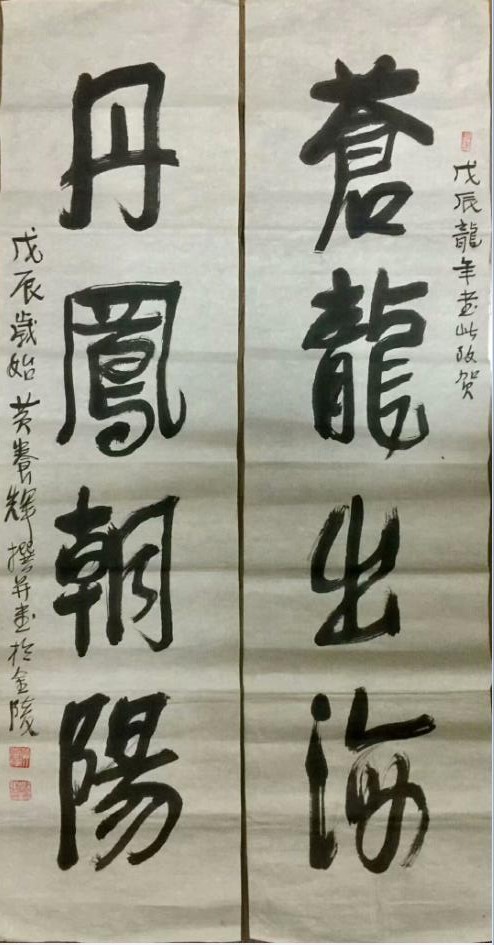 戊辰龍年書此致贺
蒼龍出海
丹鳳朝陽
戊辰歲始黄養輝撰并書於金陵